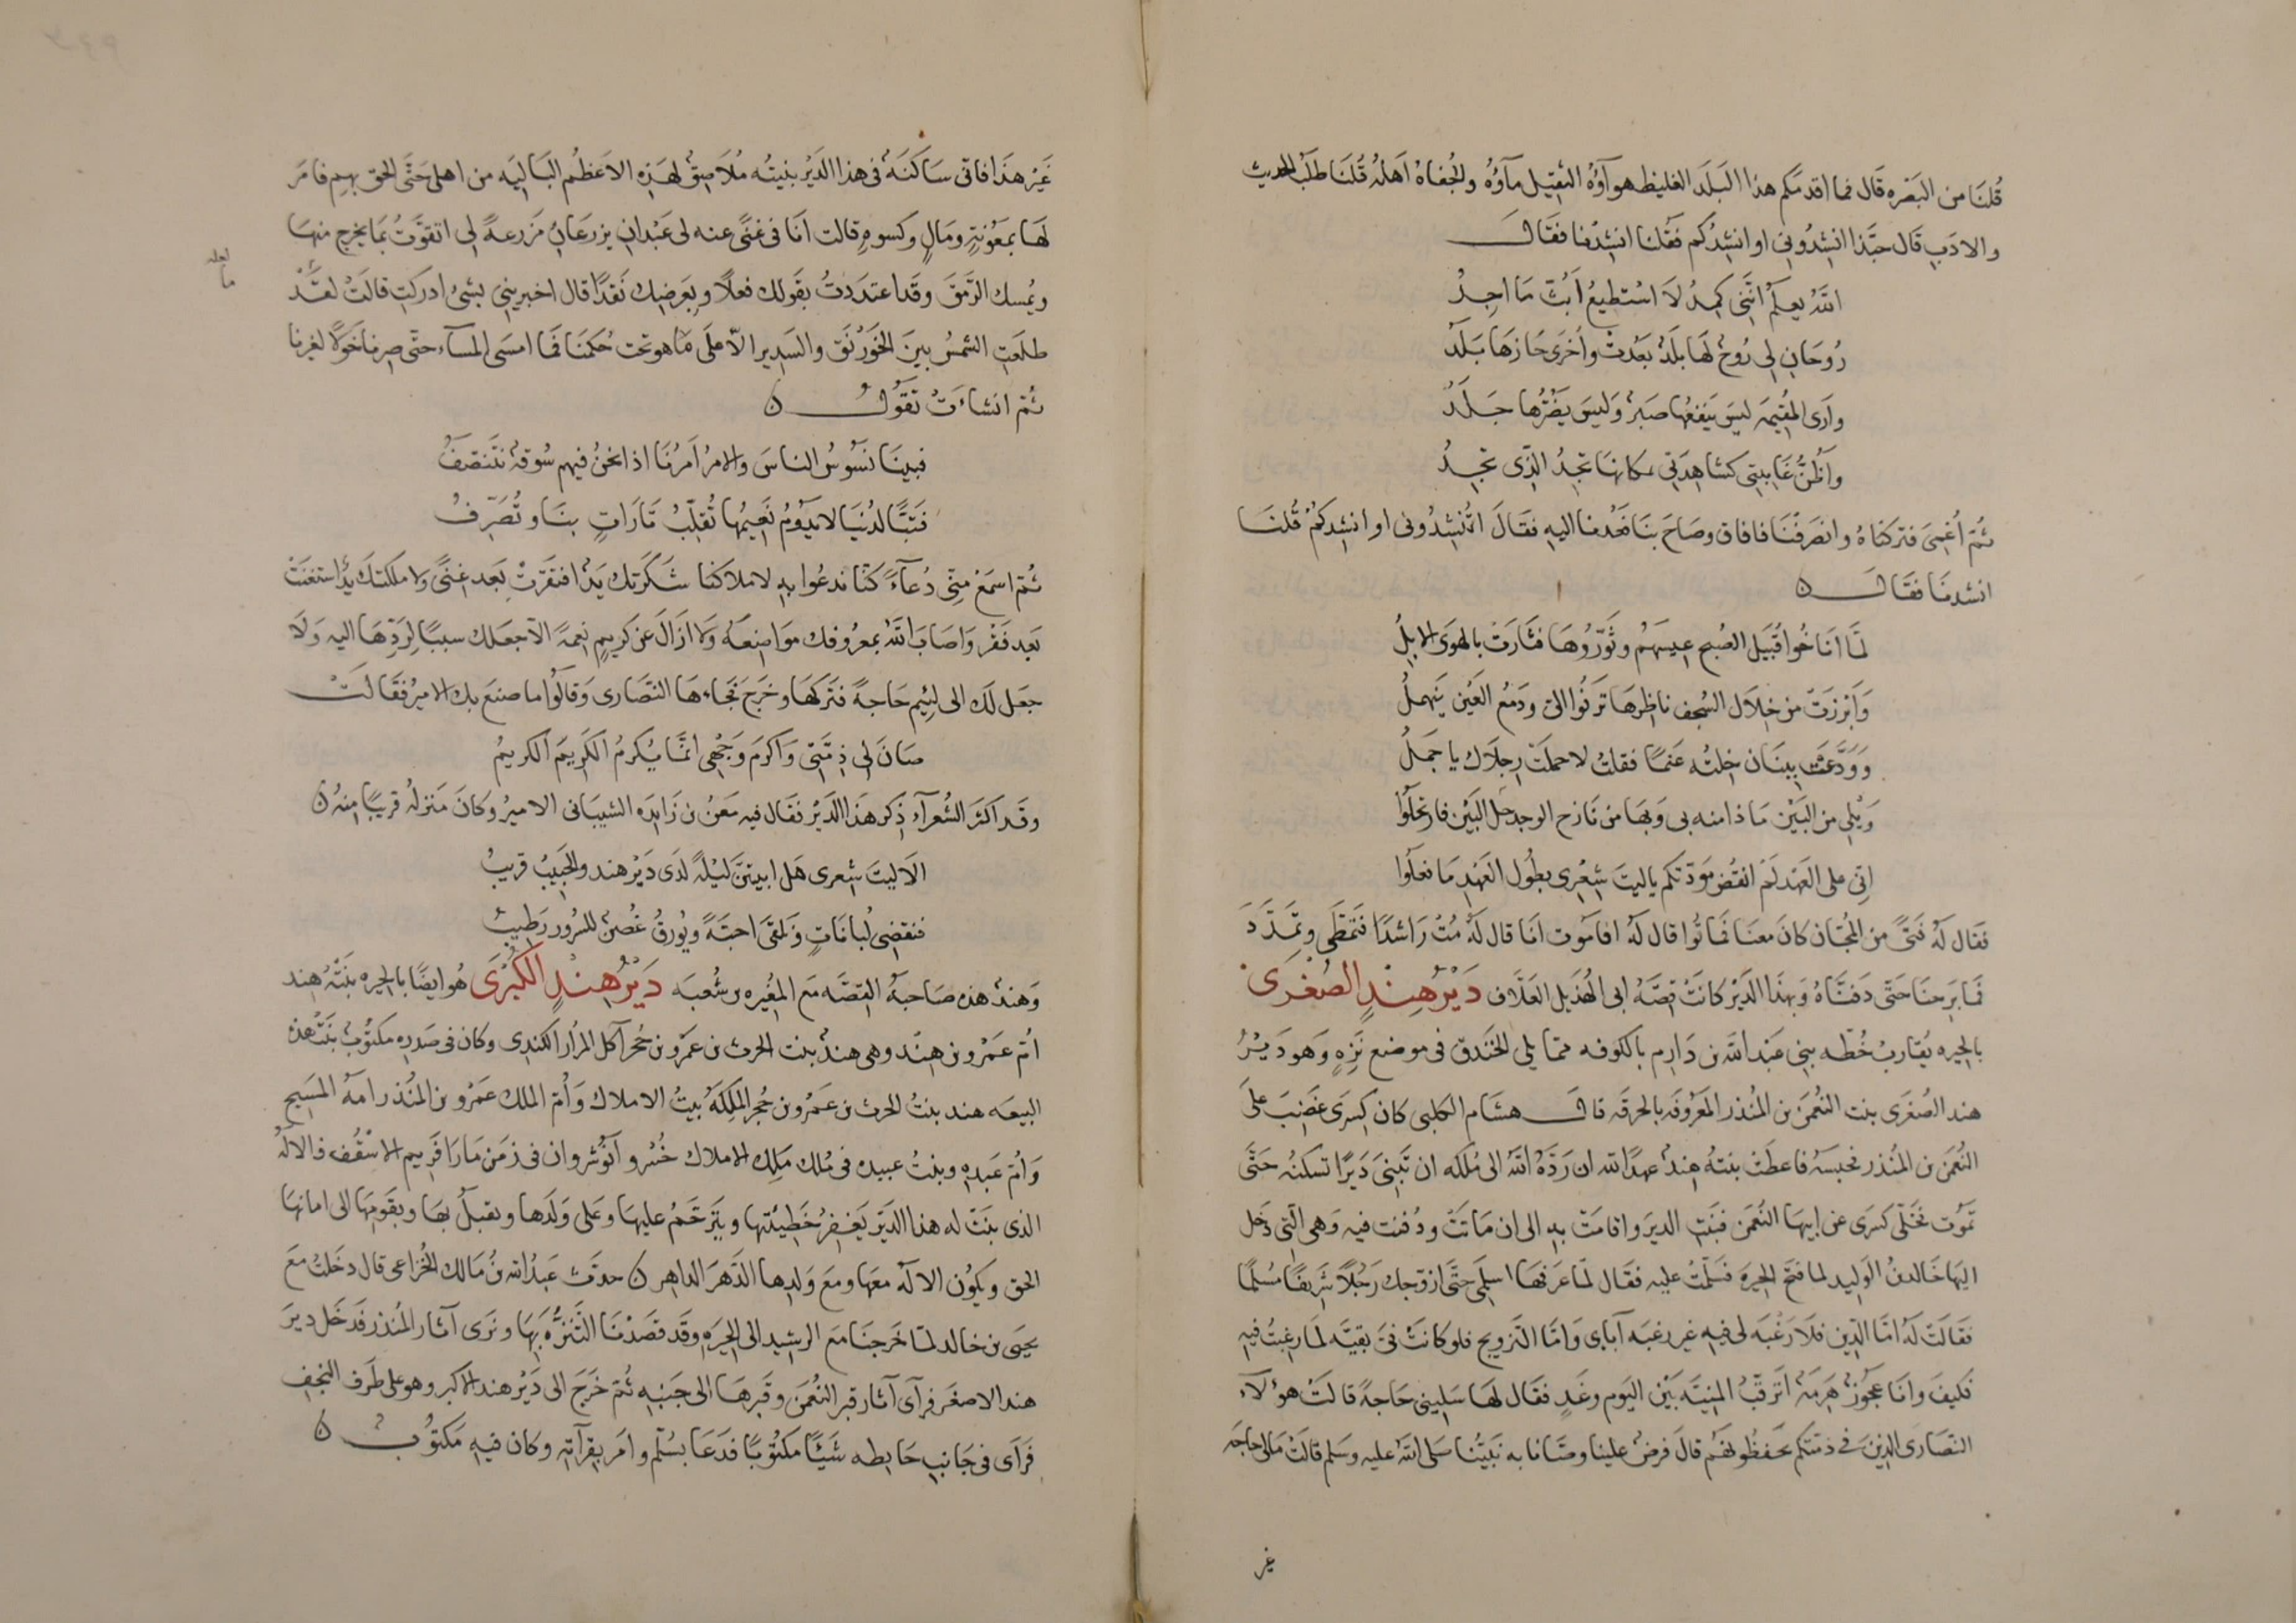 قُلنَا من البَصره قَال فما اقدمَكم هذا البَلَد الغليظ هوآؤه الثقيل مآؤه والجُفاهُ اَهلهُ قُلنَا طلَبُ الحديث
والادَبِ قَال حبَّذا انشدُونى او انشِدُكم فَقُلنا انشِدْنا فقَال
اللهُ يعلَمُ انَّنى كمِدُ لَا اسْتطيعُ اَبُثّ مَا اجِدُ
رُوحَانِ لى رُوحٌ لَها بلَدٌ بَعُدت واُخرَى حَازهَا بَلَدُ
واَرى المقيمَه ليسَ يَنفعُها صَبرٌ وَليسَ يضُرّها جَلَدُ
واَظُنُّ غَايبتِى كشاهِدَتِى بمكانهَا تجدُ الذى تجِدُ
ثُمّ اُغمِىَ فتركنَاهُ وانصَرفْنَا فافاق وصَاحَ بنَا فعُدنا اليهِ فقَالَ اتُنشِدُونى او انشدكُمْ قُلنَا
انشدنَا فقَال ۝
لمَّا انَاخُوا قُبَيل الصُبح عيسَهُمُ وثَوّرُوهَا فثَارَت بالهوَى الابِلُ
وَاَبْرزَتْ من خِلَال السُجف ناظِرهَا تَرنُوا الىّ ودَمعُ العَيْن يَنهمِلُ
وَوَدَّعَتْ ببنَان خِلتُه عَنمًا فقلتُ لا حملَتْ رِجلَاك يا جمَلُ
وَيْلى من البَيْن مَا ذا منه بى وَبهَا من نَازح الوجد حَلّ البَيْن فارتحَلُوا
اِنّى على العَهْد لَمْ انقُض موَدّتكُم ياليتَ شِعْرِى بطُول العَهْدِ مَا فعَلُوا
فقَال لهُ فتًى من المجّان كانَ معنَا مَاتُوا قال لهُ افامُوت انَا قال لهُ مُتْ رَاشدًا فتَمطّى وتمَدّدَ
فمَا بَرِحنَا حَتّى دفنّاهُ وَبهذَا الدّيْر كانَتْ قصّهُ ابى الهُذيل العَلّاف دَيْرُ هِنْدِ الصُغْرَى
بالحِيره يُقَاربُ خُطّه بنى عَبْد الله بن دَارم بالكوفه ممّا يلى الخندق فى موضع نَزِهٍ وَهو دَيْرُ
هند الصُغرَى بنت النُعمَن بن المنُذر المعَرُوفَه بالحرقَه قال هشَام الكلبى كان كِسرَى غضِبَ علَى
النُعمَن بن المنُذر فحبسَهُ فاعطَت بنتهُ هِندُ عهدًا لله ان رَدّهُ اللهُ الى مُلكه ان تَبنىَ دَيرًا تسكنُه حَتّى
تَموُت فخَلّى كسرَى عن ابيهَا النُعمَن فبنَتِ الديرَ واقامَتْ بهِ الى ان مَاتَتْ ودُفنت فيه وَهى الّتى دَخل
اليهَا خَالدبنُ الوَليد لما فتحَ الحِيرَه فسَلّمتْ عليه فقَال لمّا عَرفهَا اسلمى حتّى ازوّجك رَجُلًا شَرِيفًا مُسْلمًا
فقَالَتْ لهُ امّا الدّين فلَا رَغبَه لى فيه غير رغبَه آبَاى وَامّا التّزويج فلو كانَتْ فىّ بقيّه لمَا رغِبْتُ فيهِ
فكيفَ وانَا عجُوزٌ هَرِمَهٌ اَترقّبُ المنيّه بَيْن اليَوم وغَدٍ فقَال لهَا سَلِينى حَاجهً قالَتْ هوُلَآء
النّصَارى الذينَ فى ذمّتكُم تحفظُونهُم قالَ فرضٌ علينا وصّانا به نَبيّنا صَلى الله عليه وسَلم قالتْ مَالى حاجَه
غير
غَيْر هذَا فانّى سَاكنَهٌ فى هذا الدّيْر بنيتُه مُلَاصِقُ لهذِهِ الاعظُم البَاليَه من اهلى حَتّى الحق بهِم فامَر
لهَا بمعُونهٍ ومَالٍ وكسوهٍ قالت انَا فى غنًى عنه لى عَبْدانِ يزرعَانِ مَزرعهً لى اتقوّتُ بمَا يخرج منهَا
لعله
ما
ويُمسك الرّمَقَ وقَد اعتددتُ بقَولك فعلًا وبعَرضِك نَقدًا قال اخبريَنى بشئٍ ادركتِ قالتْ لقَد
طلَعتِ الشمسُ بينَ الخوَرْنَق والسَدير الّا علَى مَا هو تحت حُكمنَا فمَا امسَى المسَآء حتّى صِرنا خَوَلًا لغيرنا
ثمّ انشاءَتْ تقُولُ ۝
فبينَا نَسُوسُ الناسَ والامرُ اَمرُنَا اذا نحنُ فيهم سُوقهٌ نتَنصّفُ
فتبًّا لدُنيَا لا يدُومُ نَعيمُها تُقلّبُ تَارَاتٍ بنَا وتُصَرّفُ
ثُمّ اسمَعْ منّى دُعآءً كنّا ندعُوا به لاملاكنا شَكرتك يَدٌ افتقَرَتْ بَعد غِنًى ولا ملكَتك يَدٌ استغنَتْ
بَعد فَقْر وَاصَابَ اللهُ بمعرُوفك موَاضِعَهُ وَلا ازَالَ عن كريمٍ نعِمهً الّا جعَلك سببًا لِرَدّهَا اليه وَلَا
جعَل لَك الى لئيم حَاجهً فتَركهَا وخَرَجَ فجاءها النصَارى وَقالوُا ما صنَع بك الامِيرُ فقَالَتْ
صَانَ لى ذِمّتى وَاكرَم وَجهى انمّا يُكرمُ الكَرِيمَ الكريمُ
وقَد اكثَر الشُعرآء ذِكر هَذا الدّيْر فقَال فيه مَعْنُ بن زَايدَه الشيبَانى الاميرُ وكانَ مَنزلهُ قريبًا مِنهُ ۝
الَا ليتَ شِعرى هَل ابيتنَّ ليلهً لَدَى دَيْر هند والحَبيبُ قريبُ
فنقضىَ لُبانَاتٍ وَنلقى احبّهً ويُورِقُ غُصنٌ للسُرور رَطيبُ
وَهندُ هَذه صَاحبهُ القصّه مَع المغُيره بن شُعبَه دَيْرُ هِنْدِ الكُبْرَى هُو ايضًا بالحِيره بَنَتْهُ هِند
امّ عَمْرو بن هِند وهى هندُ بنت الحرث بن عَمْرو بن حُجر آكل المرُار الكندِى وكان فى صَدره مكتُوبُ بنَتْ هذه
البيعَه هند بنتُ الحرث بن عَمْرو بن حُجر المَلِكهُ بنتُ الاملاك وَاُمّ الملك عَمْرو بن المنُذر امهُ المسَيح
وَاُمّ عَبدِهِ وبنتُ عبيده فى مُلك مَلِك الاملاك خُسْرو آنُوشروان فى زمَن مَارَا فَرِيم الاسْقُف فالالَهُ
الذى بنَتْ له هذا الدّيَر يَغفرُ خَطِيئتها ويترَحّمُ عليهَا وعَلى وَلَدها ويقبلُ بهَا وبقَومِهَا الى امانهَا
الحق ويَكُون الالَهُ معهَا ومعَ وَلدها الدَهرَ الداهر ۝ حدّث عَبدُ الله بنُ مَالك الخُزاعى قال دخلتُ معَ
يحيى بن خالد لمّا خَرجنَا معَ الرشيد الى الحِيَرهِ وقَد قصَدْنَا التَنَزُّهَ بهَا ونَرَى آثار المنُذر فَدخَل ديرَ
هند الاصغَر فرآى آثار قبر النُعْمَن وقَبرهَا الى جَنبهِ ثُمّ خَرَجَ الى دَيْر هند الاكبر وهو على طَرف النجف
فرَآى فى جَانب حَايطه شَيْئًا مكتُوبًا فدَعَا بسُلّم وامَر بقرآتهِ وكان فيهِ مَكتُوبُ ۝